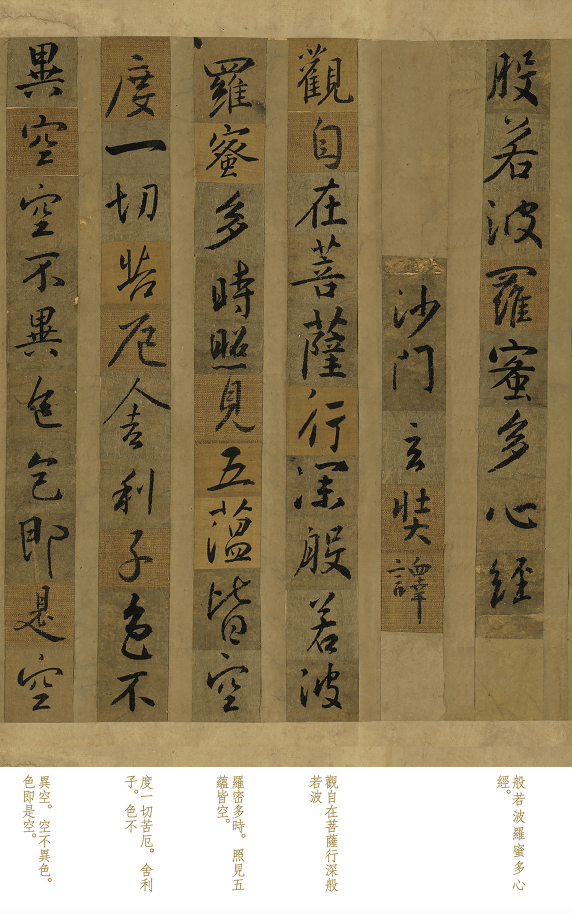 般若波羅蜜多心經
沙門玄奘譯
觀自在菩薩行深般若波
羅蜜多時照見五蘊皆空
度一切苦厄舍利子色不
異空空不異色色即是空
般若波羅蜜多心
經。
觀自在菩薩行深般
若波
羅密多時。照見五
蘊皆空。
度一切苦厄。舍利
子。色不
異空。空不異色。
色即是空。